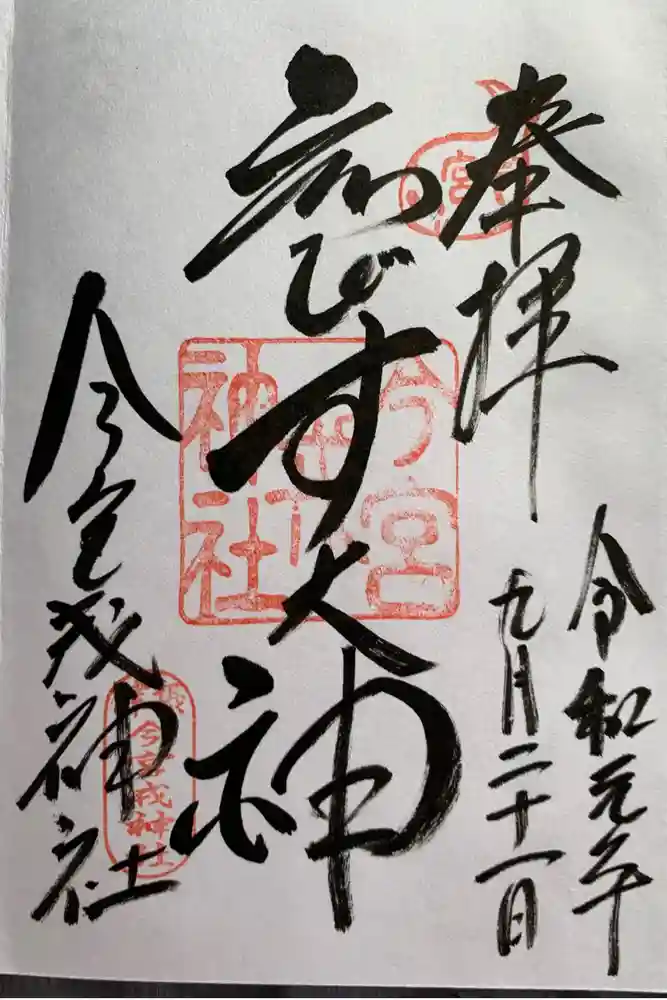 奉拝
令和元年
九月二十一日
ゑびす大神
今宮戎神社
今宮
戎
神社
今宮戎神社